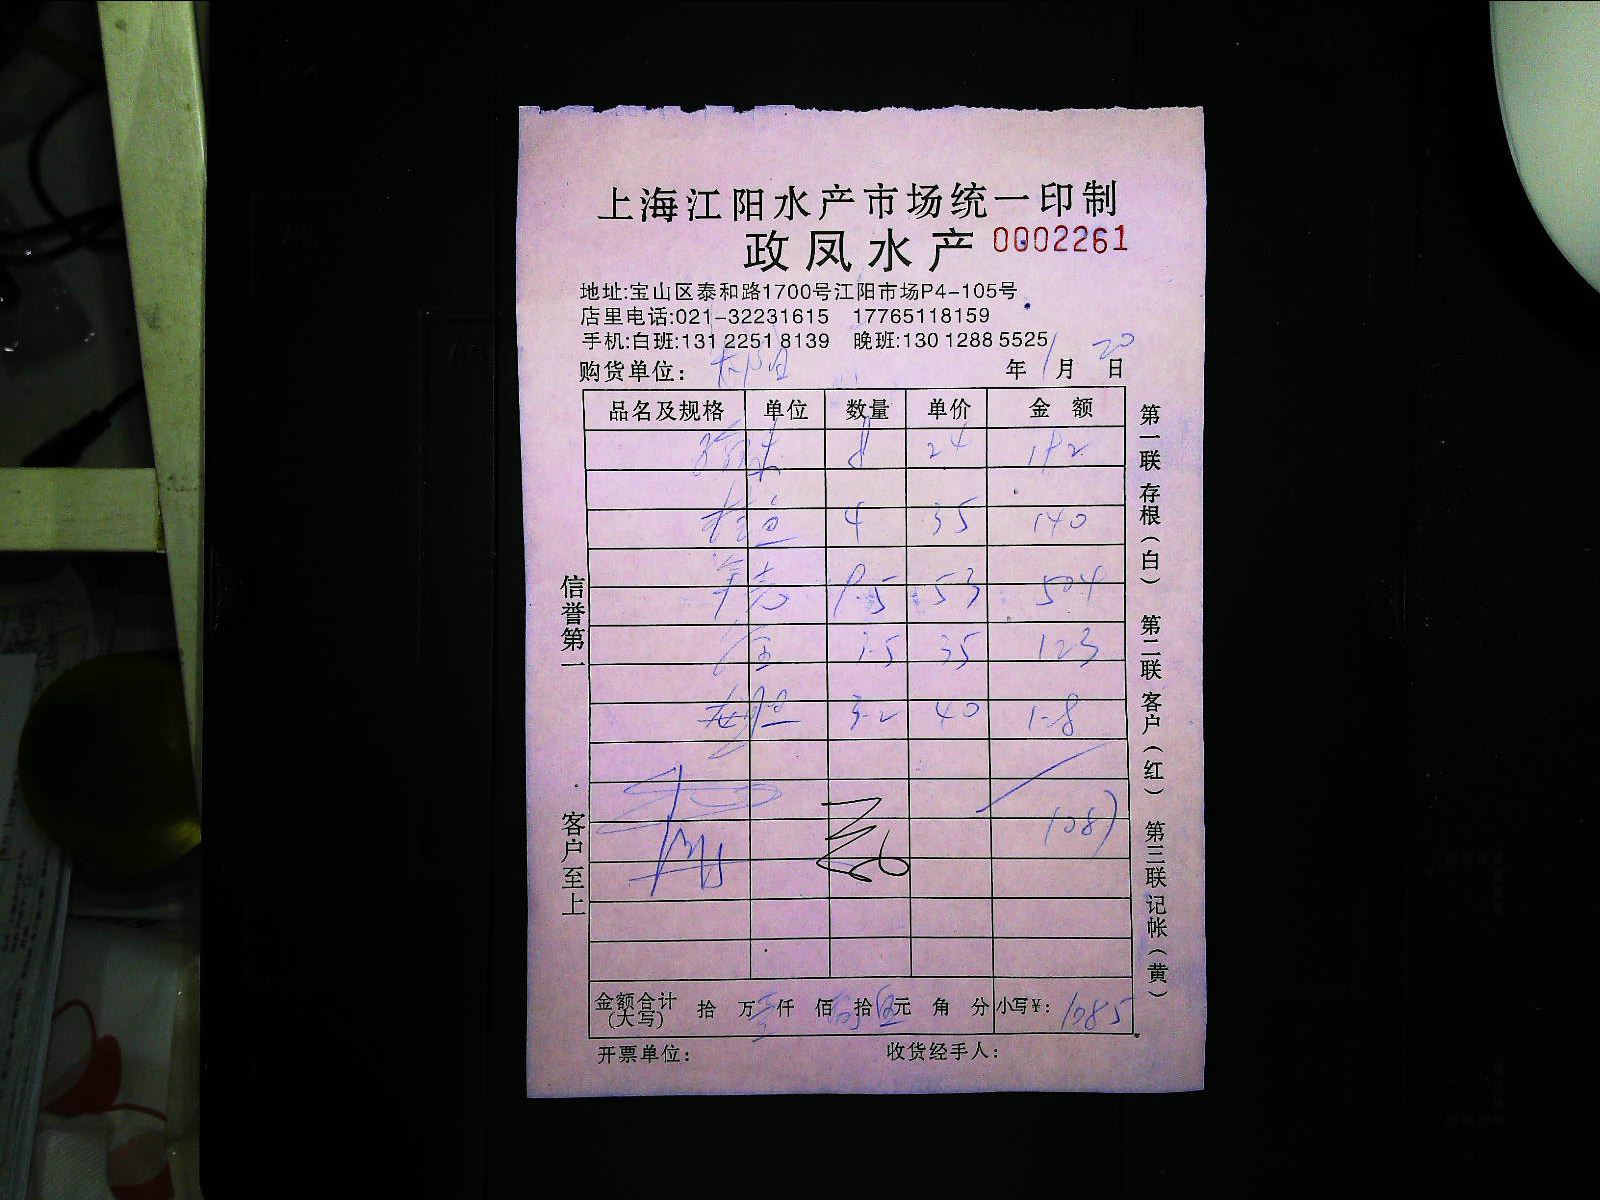 上海江阳水产市场统一印制
政凤水产 0002261
地址:宝山区泰和路1700号江阳市场P4-105号
店里电话:021-32231615 17765118159
手机:白班:131 2251 8139 晚班:130 1288 5525
购货单位: 年 1 月 20 日
品名及规格 单位 数量 单价 金 额
8 24 192
4 35 140
9.5 53 504
3.5 35 123
3.2 40 128
1087
金额合计(大写) 拾 万 仟 佰 拾 伍 元 角 分 小写¥: 1085
开票单位: 收货经手人:
信誉第一
客户至上
第一联 存根(白) 第二联 客户(红) 第三联 记帐(黄)